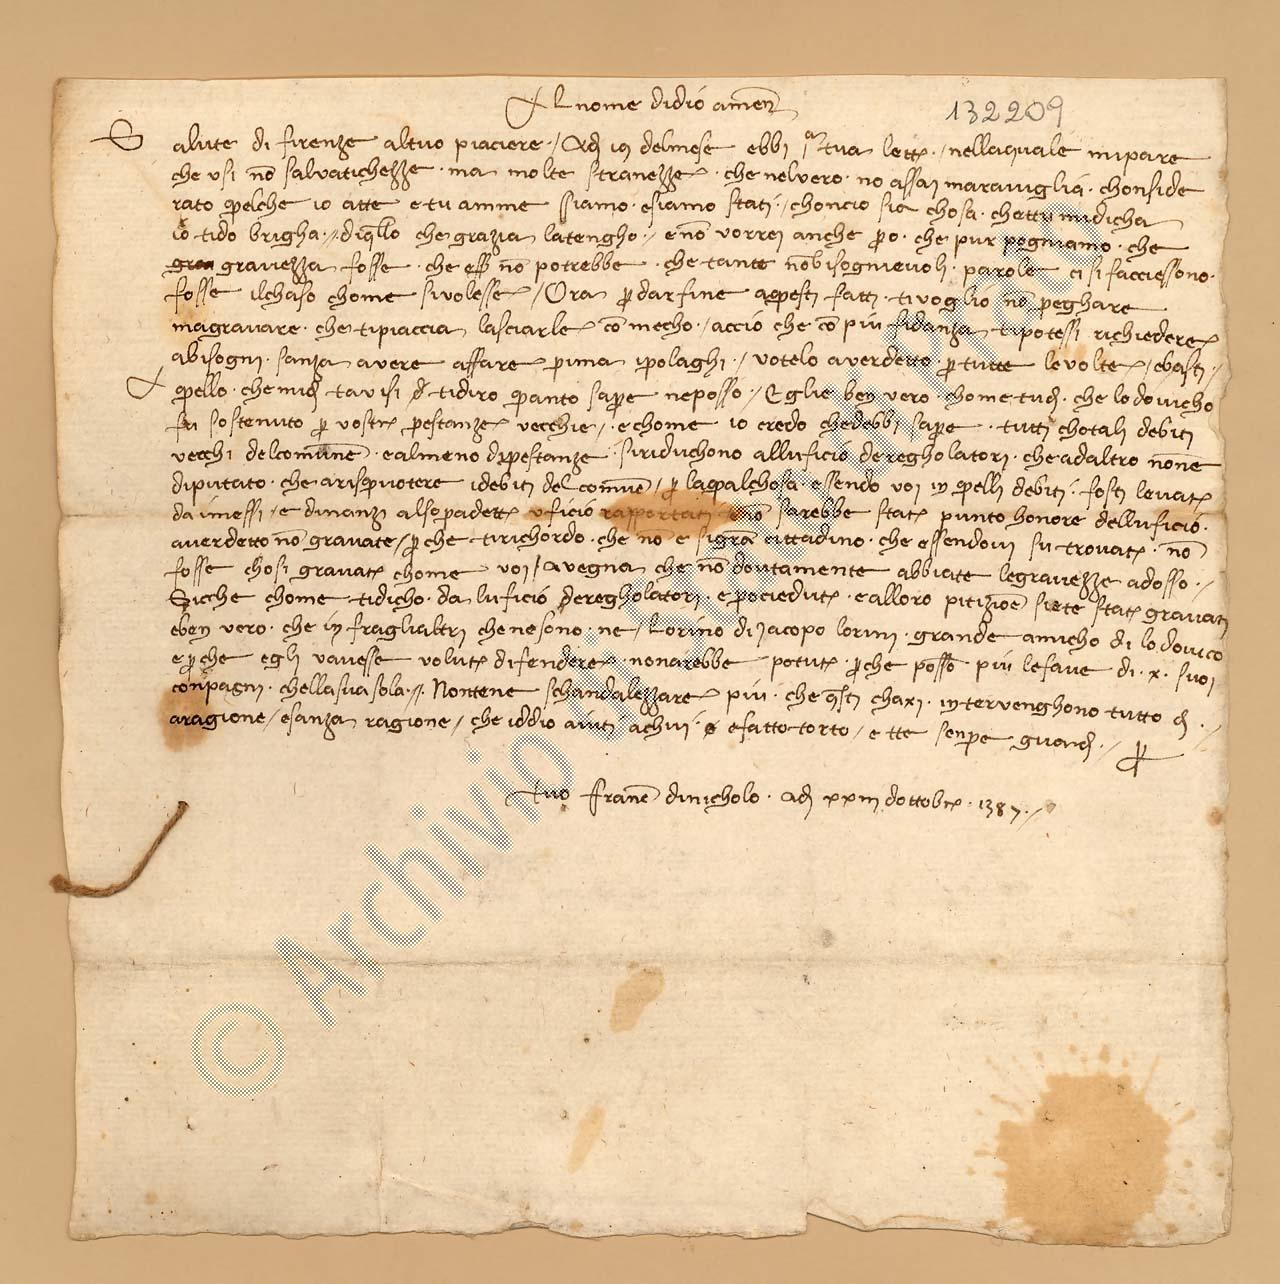 Al nome didio amen
132209
Salute di firenze altuo piaciere / Adj 19 delmese ebbi 1ª tua lettª / nellaquale mipare
che usi nō salvatichezze · ma molte stranezze · che nelvero · no assai maraviglia · chonside
rato quelche io atte e tu amme siamo · e siamo stati / choncio sia chosa · chettu midicha
io tido brigha / diqllo che grazia latengho / e nō vorrei anche pro · che pur pogniamo · che
gravezza fosse · che esser nō potrebbe · che tante nōbisognievoli · parole ci si facciessono ·
fosse ilchaso chome sivolesse / Ora per dar fine aquesti fatti · tivoglio nō preghare
magravare · che tipiaccia lasciarle cō mecho / accio che cō piu fidanza tipotessi richiedere
abisogni · sanza avere affare prima ipolaghi / votelo averdetto per tutte levolte / ebasti /
quello · che midj tavisi tidiro quanto sapere neposso / Eglie ben vero · chome tudj · che lodovicho
fu sostenuto per vostre prestanze vecchie / e chome io credo chedebbi sapere · tutti chotali debiti
vecchi delcomune · e almeno diprestanze · siriduchono allufficio deregholatori · che adaltro none
diputato · che arisquotere idebiti del comune / per laqualchosa · essendo voi in quelli debiti · fosti levatj
da imessi / e dinanzi alsopradetto uficio rapportati enō sarebbe stato punto honore delluficio ·
averdetto nō gravate / perche tirichordo · che nō e si gran cittadino · che essendovi su trovato · nō
fosse chosi gravato chome voi / avegna che nō dovtamente abbiate legravezze adosso /
Sicche chome tidicho · da luficio deregholatori · e prociedutj · e alloro pitizione siete stati gravati
eben vero · che in fraglialtri chenesono · ne / Lorino di Jacopo lorini · grande amicho di lodovico
e perche egli vavesse voluto difendere · nonarebbe potuto · perche posson piu lefave di · x · suoi
conpagni · chellasua sola // Nontene schandalezzare piu · che questi chaxi · intervenghono tutto dj ·
aragione / e sanza ragione / che iddio aiuti achui · e fatto torto / e tte senpre guardj · / per
tuo francº dinicholo · adj xxiij dottobre · 1387 · /
© Archivio di Stato di Prato